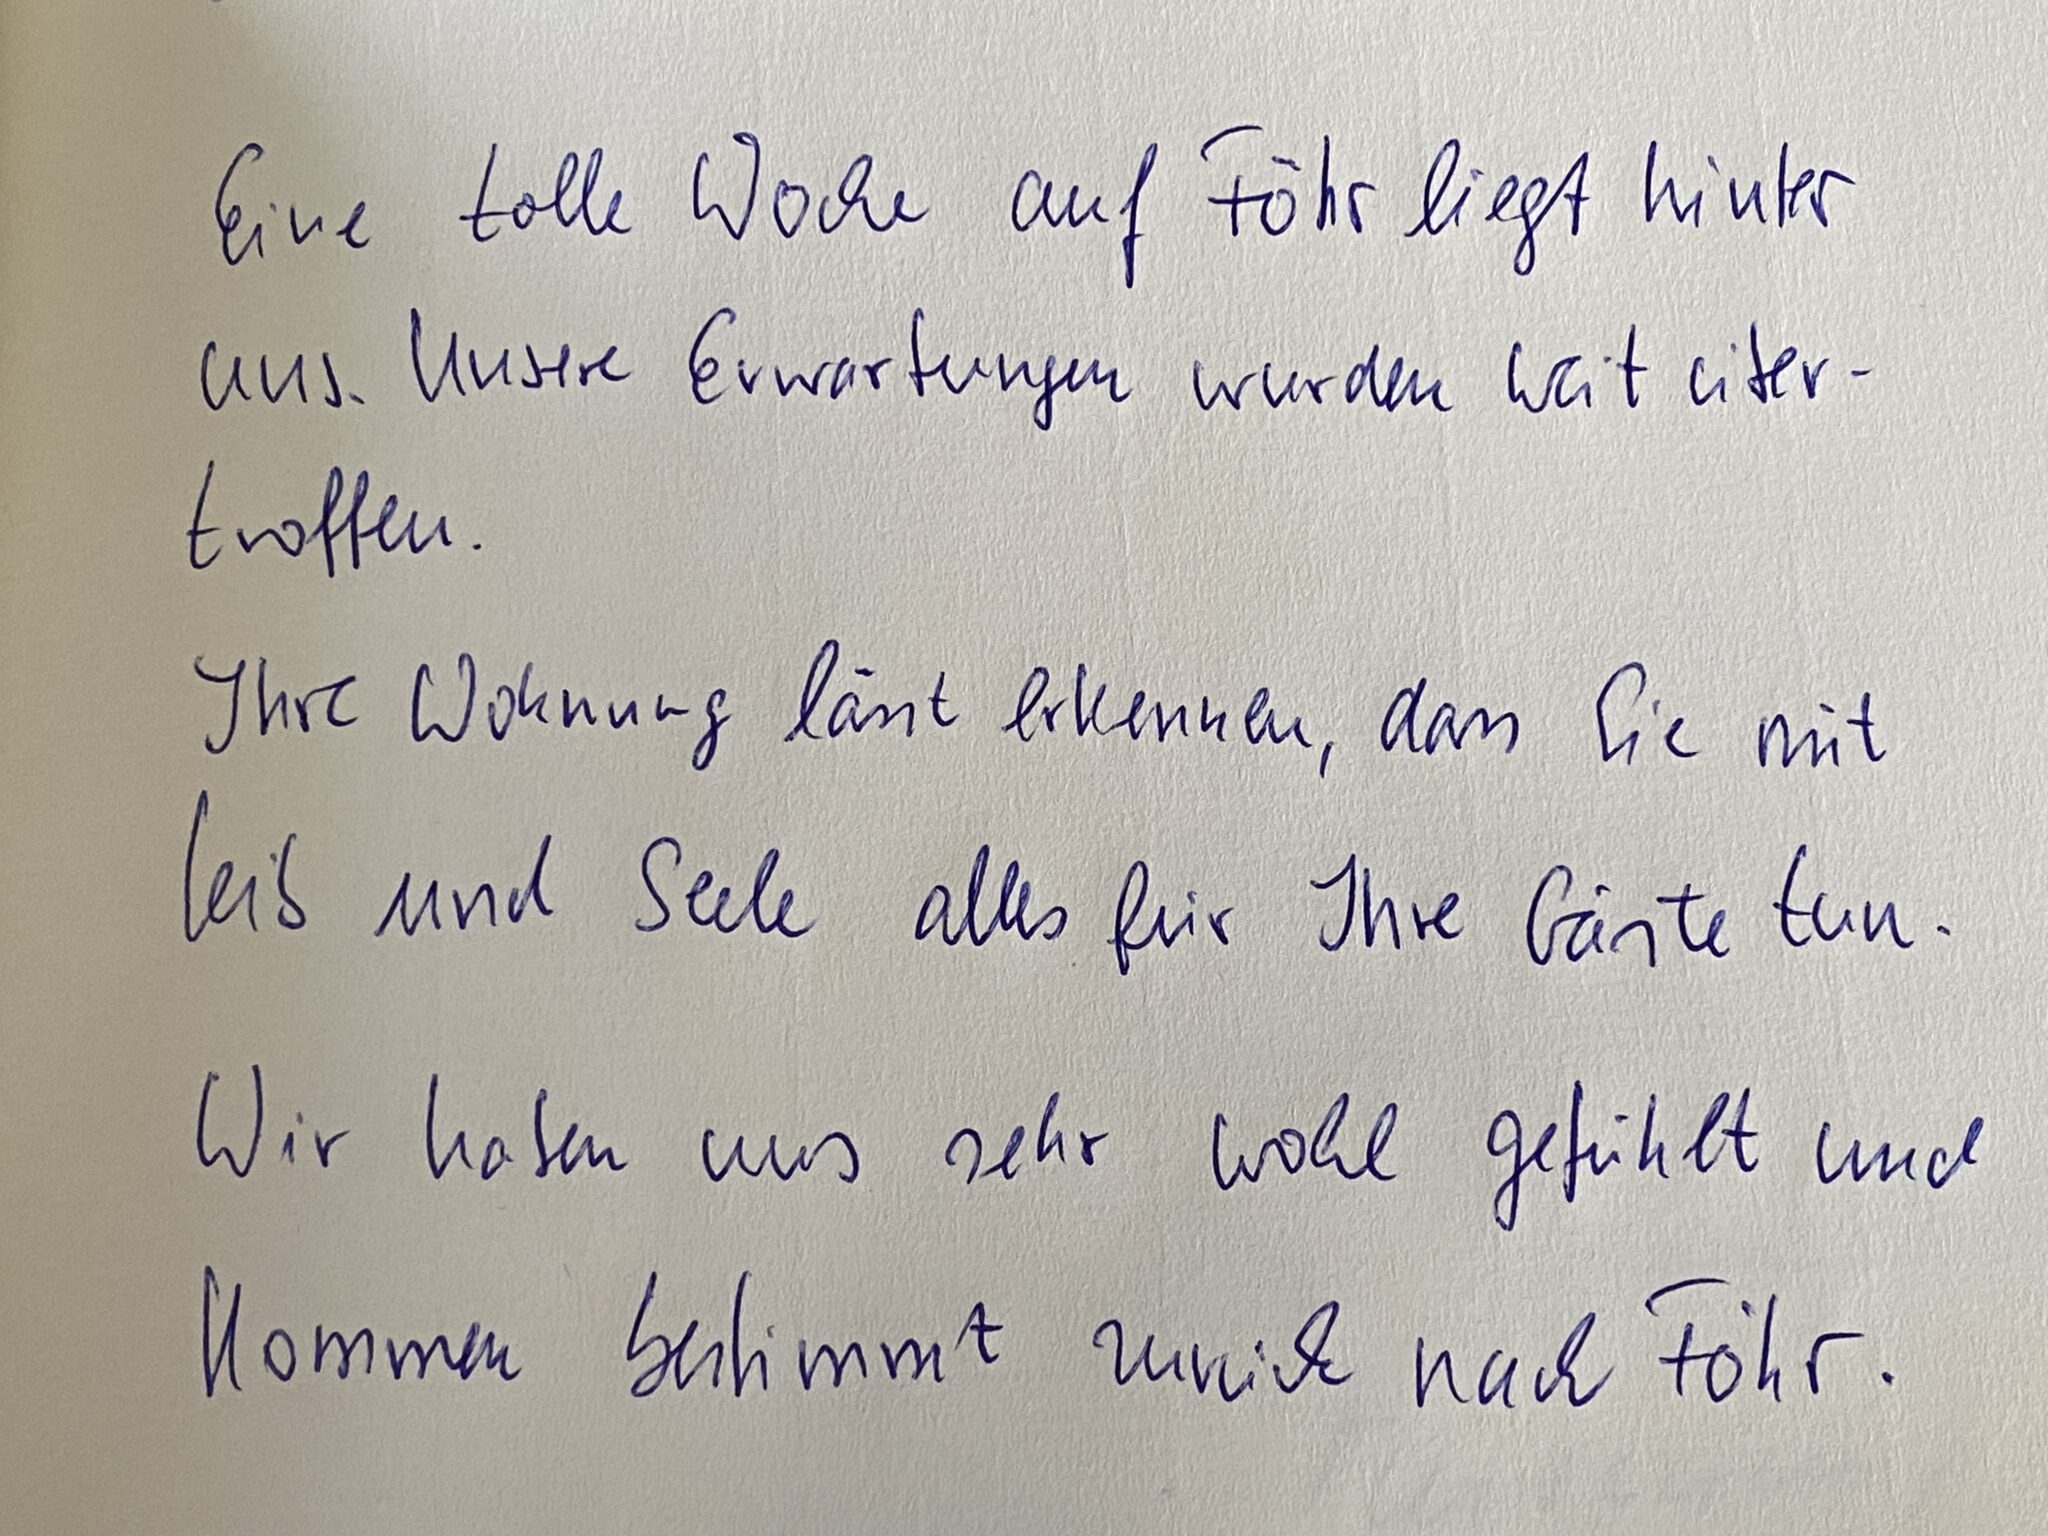 Eine tolle Woche auf Föhr liegt hinter
uns. Unsere Erwartungen wurden weit über-
troffen.
Ihre Wohnung lässt erkennen, dass Sie mit
Leib und Seele alles für Ihre Gäste tun.
Wir haben uns sehr wohl gefühlt und
kommen bestimmt zurück nach Föhr.